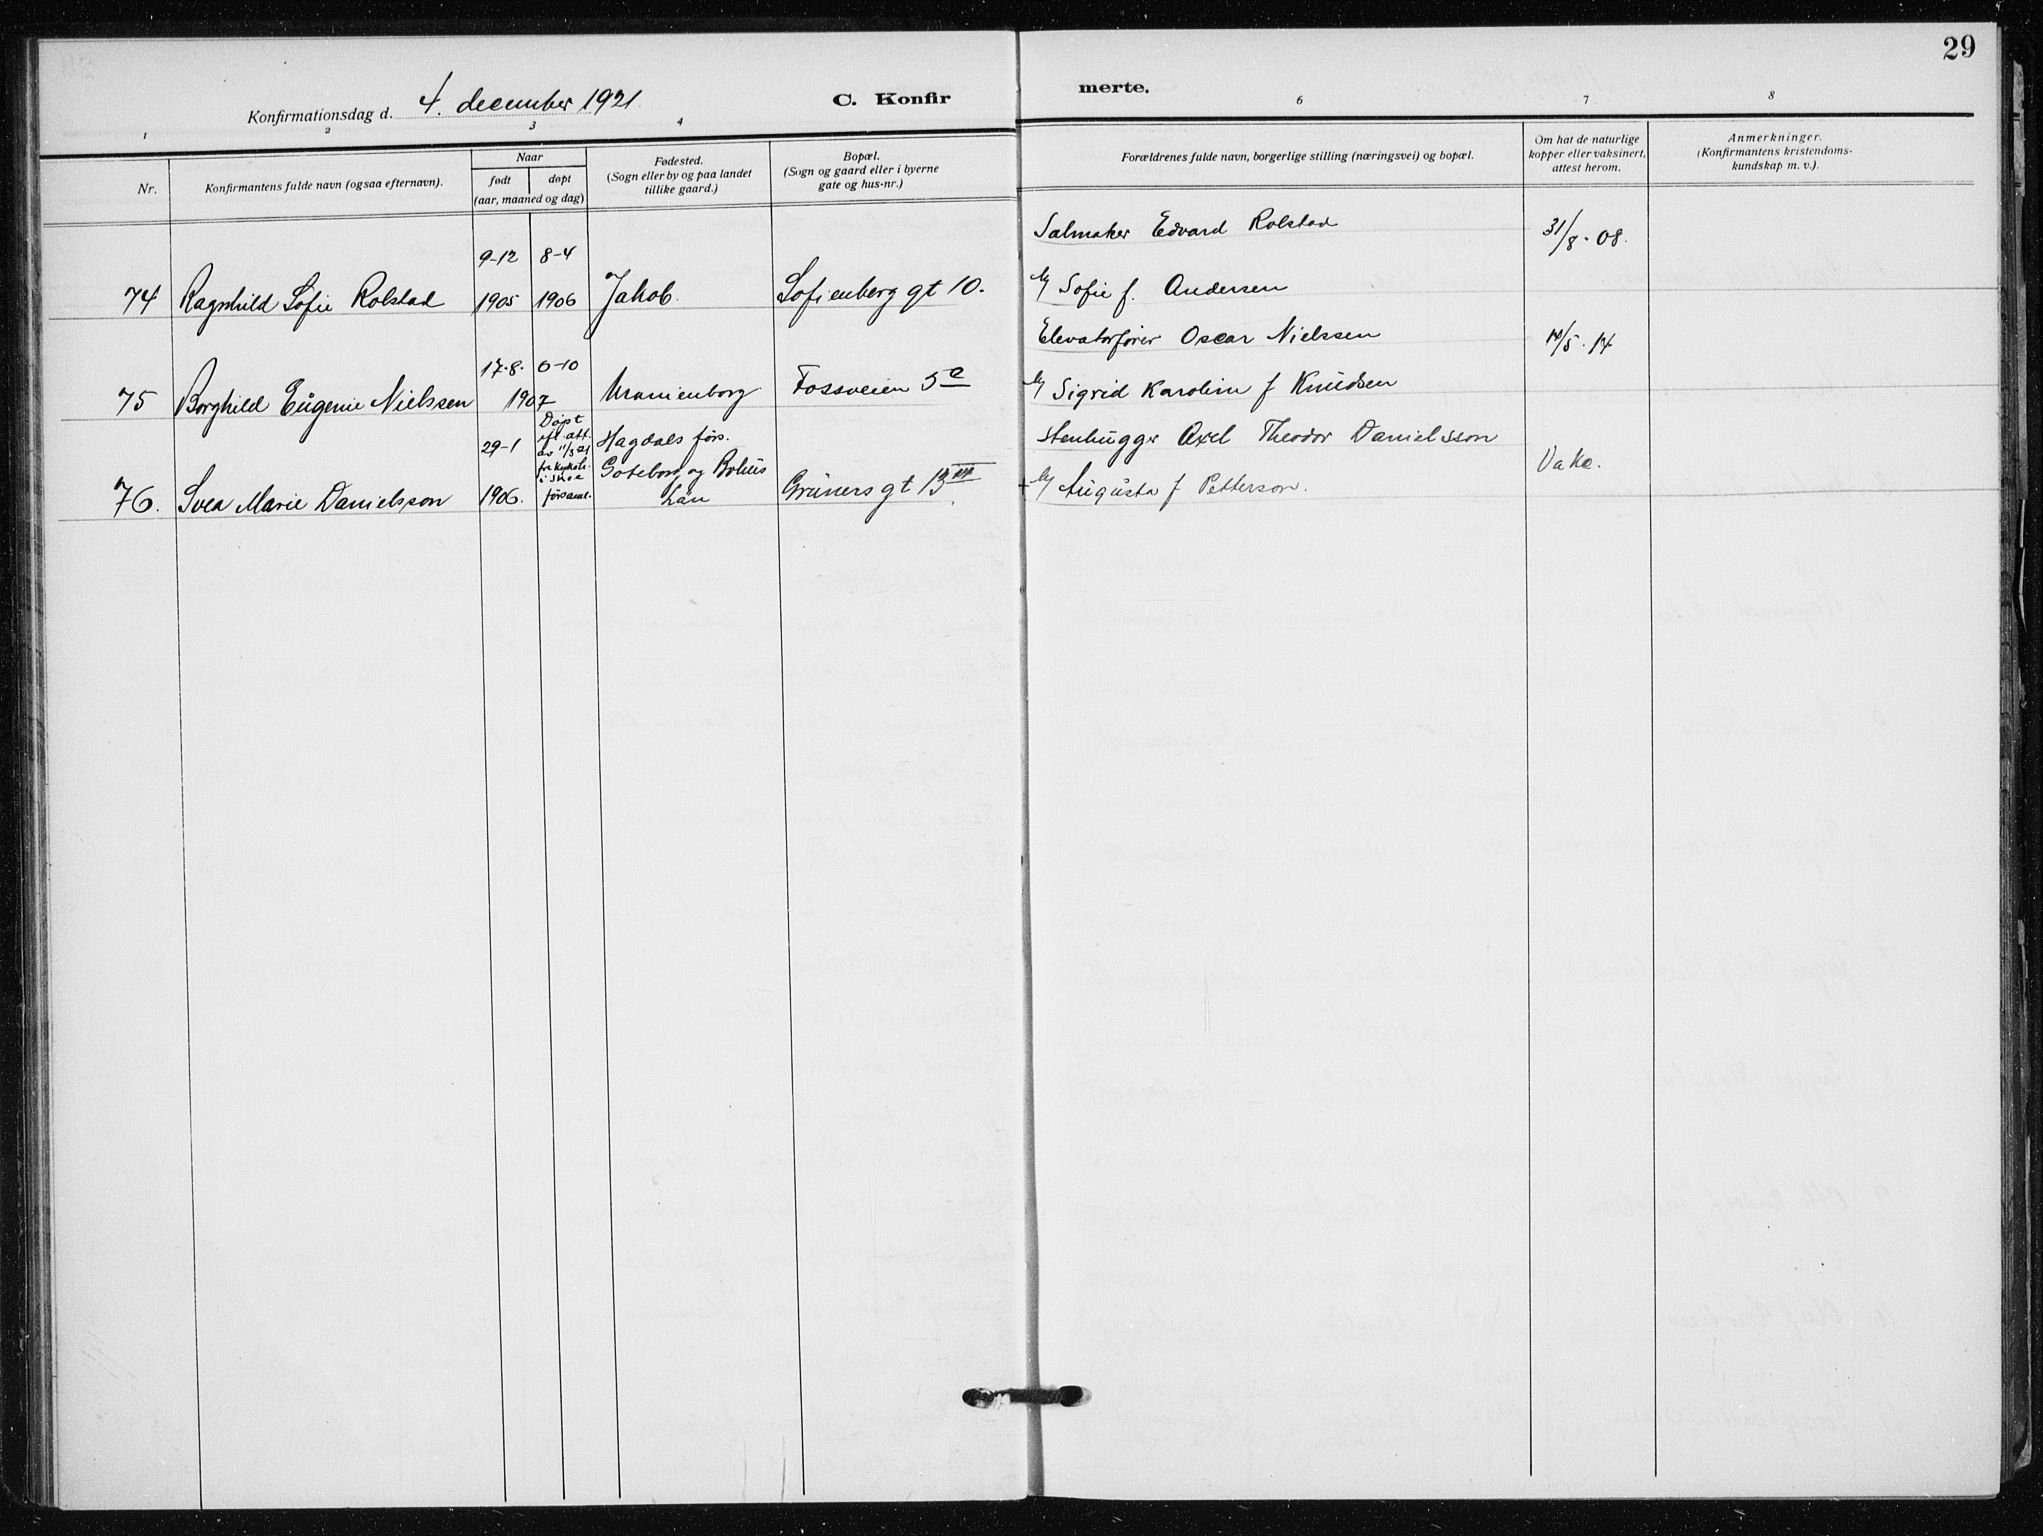 29
Konfirmationsdag d. 4. december 1921
C. Konfir merte.
1 2 3 4 6 7 8
Nr.
Konfirmantens fulde navn (ogsaa efternavn).
Naar
født
døpt
(aar, maaned og dag)
Fødested.
(Sogn eller by og paa landet
tillike gaard.)
Bopæl.
(Sogn og gaard eller i byerne
gate og hus-nr.)
Forældrenes fulde navn, borgerlige stilling (næringsvei) og bopæl.
Om hat de naturlige
kopper eller vaksinert,
attest herom.
Anmerkninger.
(Konfirmantens kristendoms-
kundskap m. v.).
9-12 8-4 Salmaker Edvard Rolstad 31/8-08.
74 Ragnhild Sofie Rolstad 1905 1906 Jakob. Sofienberg gt 10. Sofie f. Andersen
17-8. 6-10 Elevatorfører Oscar Nielssen /5-14
75 Borghild Eugenie Nielssen 1907 Uranienborg Fossveien 5 Sigrid Karoline f Knudsen
29-1 Døpt
att.
av 11/3 21
i Skee
førsaml.
Hagdals førs.
Göteborg og Bohus
Län
Stenhugger Axel Theodor Danielsson Vakc.
76. Svea Marie Danielsson 1906. Grüners gt 13 III. + Augusta f Petterson.